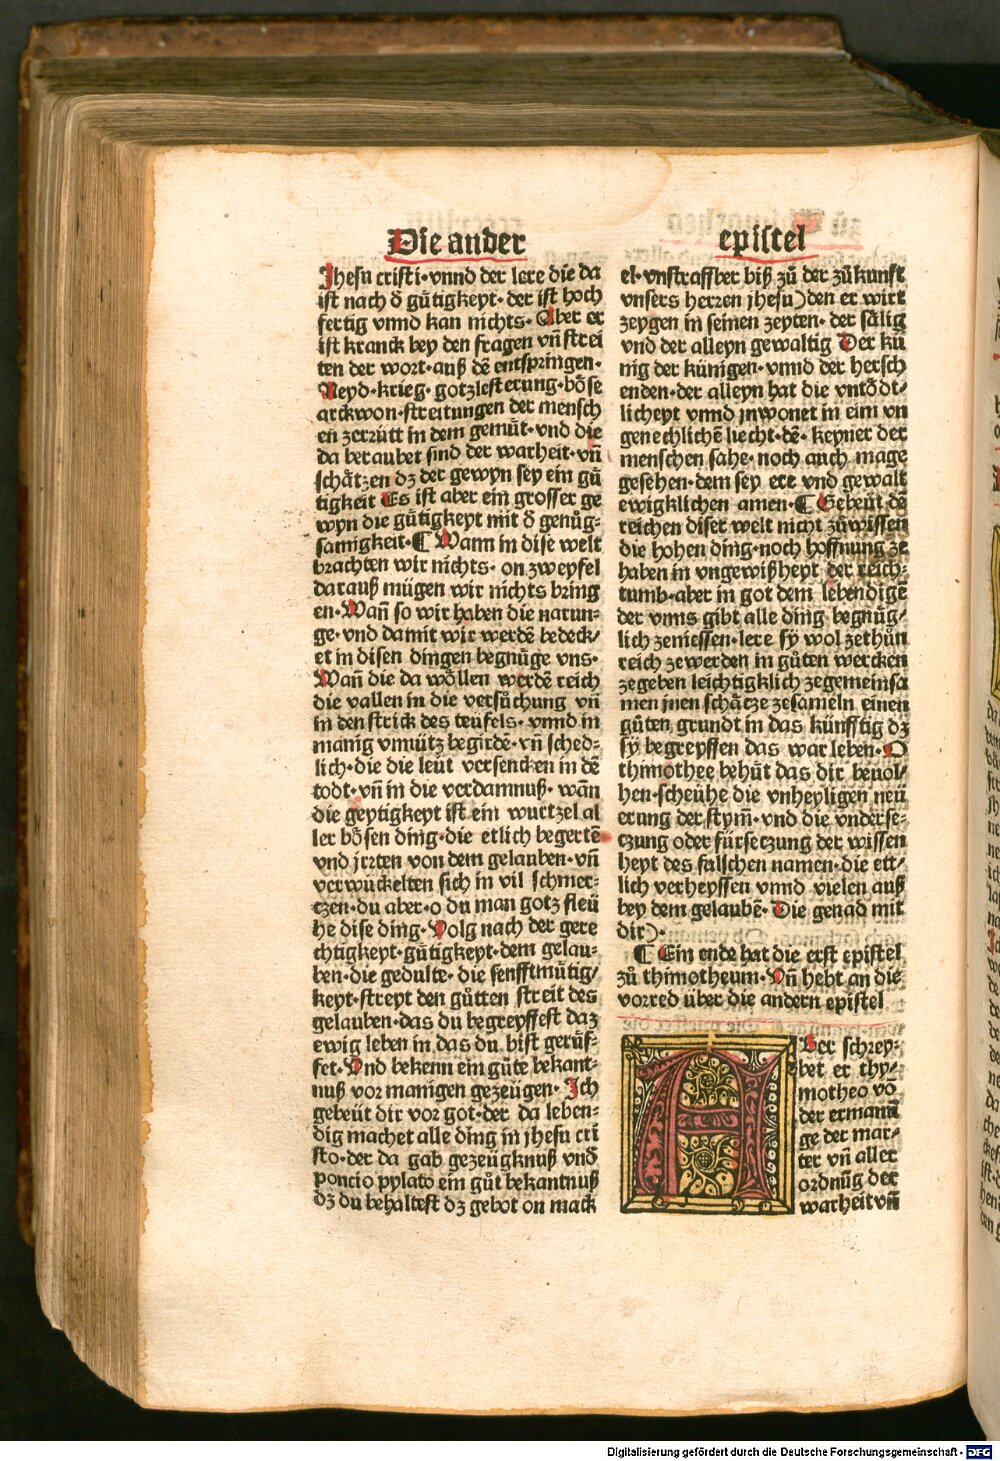 Die ander
epistel
Jhesu cristi·vnnd der lere die da
ist nach d̄ gůtigkeyt·der ist hoch
fertig vnnd kan nichts·Aber er
ist kranck bey den fragen vn̄ strei
ten der wort·auß dē entspringen·
Neyd·krieg·gotzlesterung·bőse
arckwon·streitungen der mensch
en zerrütt in dem gemůt·vnd die
da beraubet sind der warheit·vn̄
schåtzen dz der gewyn sey ein gů
tigkeit Es ist aber ein grosser ge
wyn die gůtigkeyt mit d̄ genůg⸗
samigkeit·¶ Wann in dise welt
brachten wir nichts·on zweyfel
darauß mügen wir nichts bring
en·Wan̄ so wir haben die narun⸗
ge·vnd damit wir werdē bedeck/
et in disen dingen begnüge vns·
Wan̄ die da wőllen werdē reich
die vallen in die versůchung vn̄
in den strick des teufels·vnnd in
manig vnnütz begirdē·vn̄ sched⸗
lich·die die leüt versencken in dē
todt·vn̄ in die verdamnuß·wān
die geytigkeyt ist ein wurtzel al
ler bősen ding·die etlich begertē
vnd jrzten von dem gelauben·vn̄
verwückelten sich in vil schmer⸗
czen·du aber·o du man gotz fleü
he dise ding·Volg nach der gere
chtigkeyt·gůtigkeyt·dem gelau⸗
ben·die gedulte·die senfftmütig/
keyt·streyt den gůtten streit des
gelauben·das du begreyffest daz
ewig leben in das du bist gerůf⸗
fet·Vnd bekenn ein gůte bekant⸗
nuß vor manigen gezeügen·Ich
gebeüt dir vor got·der da leben⸗
dig machet alle ding in jhesu cri
sto·der da gab gezeügknuß vnd̄
poncio pylato ein gůt bekantnuß
dz du behaltest dz gebot on mack
el·vnstraffber biß zů der zůkunft
vnsers herren jhesu)den er wirt
zeygen in seinen zeyten·der sålig
vnd der alleyn gewaltig Der kü
nig der künigen·vnnd der hersch
enden·der alleyn hat die vntődt⸗
licheyt vnnd jnwonet in eim vn
genechlichē liecht·dē·keyner der
menschen sahe·noch auch mage
gesehen·dem sey ere vnd gewalt
ewigklichen amen·¶ Gebeüt dē
reichen diser welt nicht zůwissen
die hohen ding·noch hoffnung ze
haben in vngewißheyt der reich⸗
tumb·aber in got dem lebendigē
der vnns gibt alle ding begnüg/
lich zeniessen·lere sy wol zethůn
reich zewerden in gůten wercken
ze geben leichtigklich zegemeinsa
men jnen schåtze zesameln einen
gůten grundt in das künfftig dz
sy begreyffen das war leben·O
thimothee behüt das dir beuol/
hen·scheühe die vnheyligen neü
erung der stym̄·vnd die vnderse⸗
czung oder fürseczung der wissen
heyt des falschen namen·die ett/
lich verheyssen vnnd vielen auß
bey dem gelaubē·Die genad mit
dir)·
¶ Ein ende hat die erst epistel
zů thimotheum·Vn̄ hebt an die
vorred über die andern epistel
A Ber schrey⸗
bet er thy/
motheo vō
der ermanū
ge der mar/
ter vn̄ aller
ordnūg der
warheit vn̄
Digitalisierung gefördert durch die Deutsche Forschungsgemeinschaft - DFG